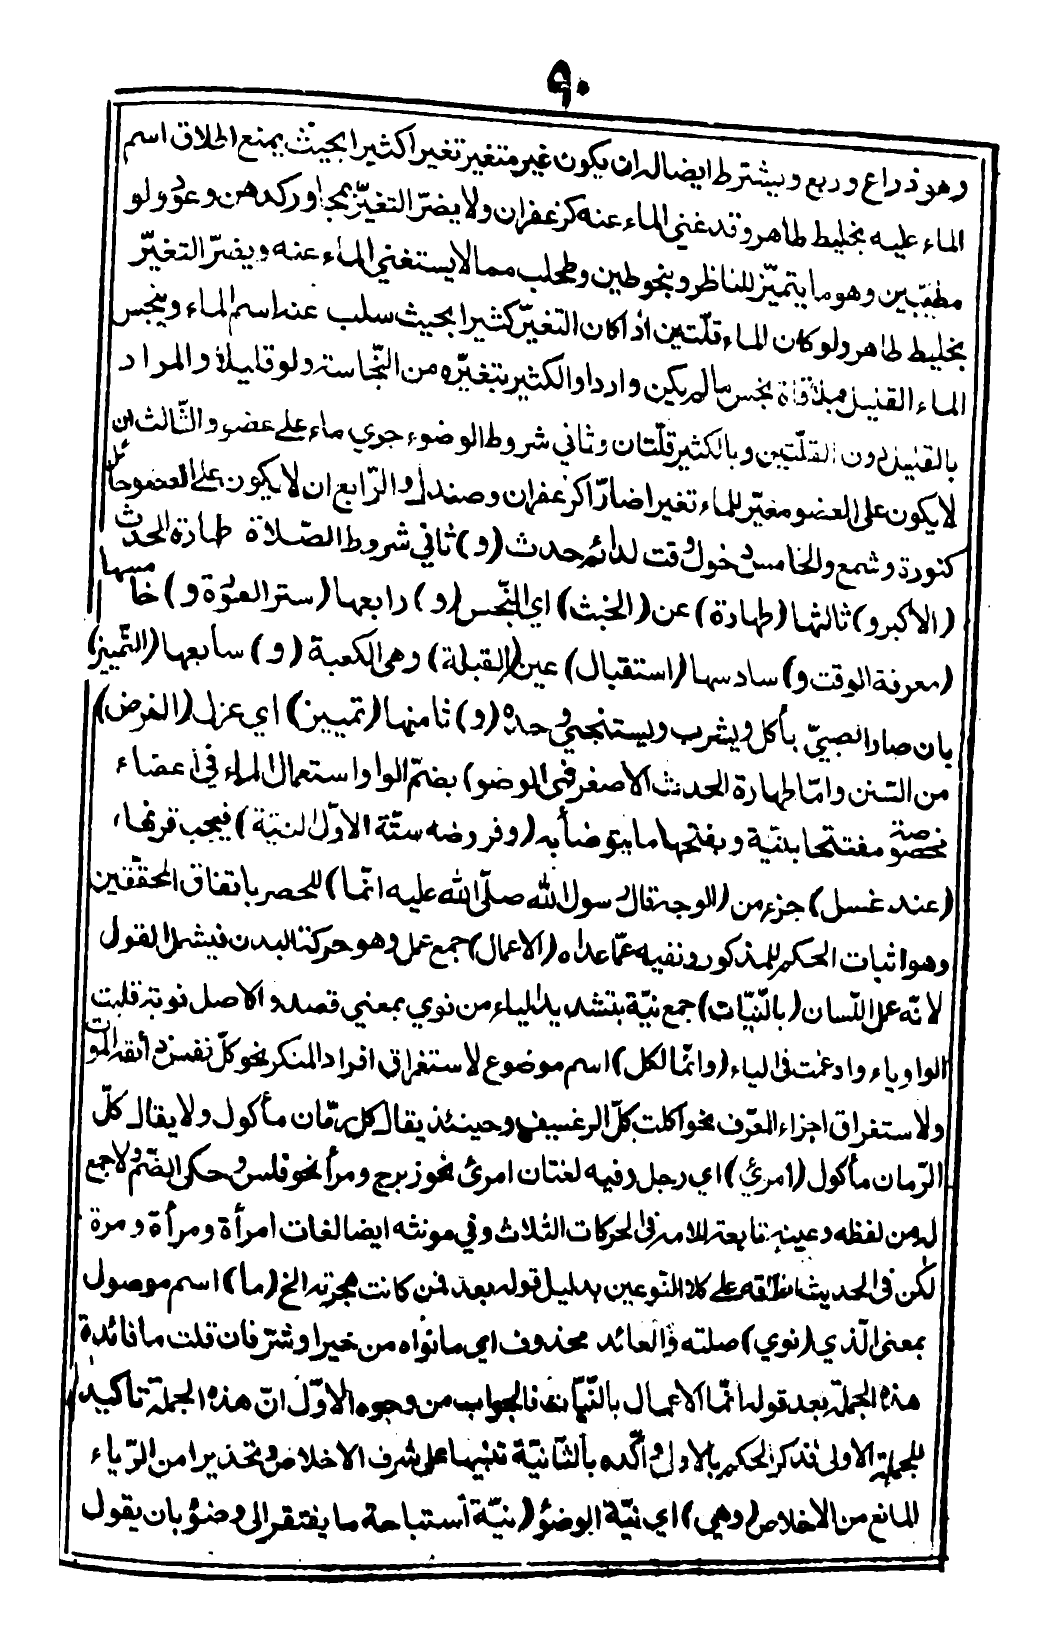 ٩٠
وهو ذراع وربع ويشترط ايضا له ان يكون غير متغير تغيرا كثيرا بحيث يمنع اطلاق اسم
الماء عليه بخليط طاهر وقد غني الماء عنه كزعفران ولا يضرّ التغيّر بمجاور كدهن وعود ولو
مطيّبين وهو ما يتميّز للناظر وبنحو طين وطحلب مما لا يستغني الماء عنه ويضرّ التغيّر
بخليط طاهر ولو كان الماء قلّتين اذا كان التغيّر كثيرا بحيث سلب عنه اسم الماء وينجس
الماء القليل بملاقاة نجس ما لم يكن واردا والكثير بتغيّره من النّجاسة ولو قليلا والمراد
بالقليل دون القلّتين وبالكثير قلّتان وثاني شروط الوضوء جري ماء على عضو والثالث ان
لا يكون على العضو مغيّر للماء تغيرا ضارّا كزعفران وصندل والرّابع ان لا يكون على العضو حائل
كنورة وشمع والخامس دخول وقت لدائم حدث (و) ثاني شروط الصّلاة طهارة الحدث
(الأكبر و) ثالثها (طهارة) عن (الخبث) اي النّجس (و) رابعها (ستر العورة و) خامسها
(معرفة الوقت و) سادسها (استقبال) عين (القبلة) وهي الكعبة (و) سابعها (التّمييز)
بان صار الصبيّ يأكل ويشرب ويستنجي وحده (و) ثامنها (تمييز) اي عزل (الفرض)
من السّنن وامّا طهارة الحدث الاصغر فهي الوضو) بضمّ الواو استعمال الماء في اعضاء
مخصوصة مفتتحا بنيّة وبفتحها ما يتوضأ به (وفروضه ستّة الاوّل النيّة) فيجب قرنها
(عند غسل) جزء من (الوجه قال رسول الله صلّى الله عليه انّما) للحصر باتفاق المحقّقين
وهو اثبات الحكم للمذكور ونفيه عمّا عداه (الاعمال) جمع عمل وهو حركة البدن فيشمل القول
لانّه عمل اللّسان (بالنّيّات) جمع نيّة بتشديد الياء من نوي بمعني قصد والاصل نوية قلبت
الواو ياء وادغمت في الياء (وانّما لكل) اسم موضوع لاستغراق افراد المنكر نحو كلّ نفس ذائقة الموت
ولاستغراق اجزاء المعرّف نحو اكلت كلّ الرغيف وحينئذ يقال كل رمّان مأكول ولا يقال كلّ
الرّمان مأكول (امرئ) اي رجل وفيه لغتان امرئ نحو زبرج ومرأ نحو فلس وحكى الضّم ولا جمع
له من لفظه وعينه تابعة للامه في الحركات الثلاث وفي مونثه ايضا لغات امرأة ومرأة ومرة
لكن في الحديث اطلقه على كلا النّوعين بدليل قوله بعد فمن كانت هجرته الخ (ما) اسم موصول
بمعني الّذي (نوي) صلته والعائد محذوف اي ما نواه من خير او شرّ فان قلت ما فائدة
هذه الجملة بعد قوله انّما الاعمال بالنّيّات فالجواب من وجوه الاوّل انّ هذه الجملة تاكيد
للجملة الاولى فذكر الحكم بالاولى وأكّده بالثّانيّة تنبيها على شرف الاخلاص وتحذيرا من الرّياء
المانع من الاخلاص (وهي) اي نيّة الوضؤ (نيّة أستباحة ما يفتقر الى وضؤ بان يقول